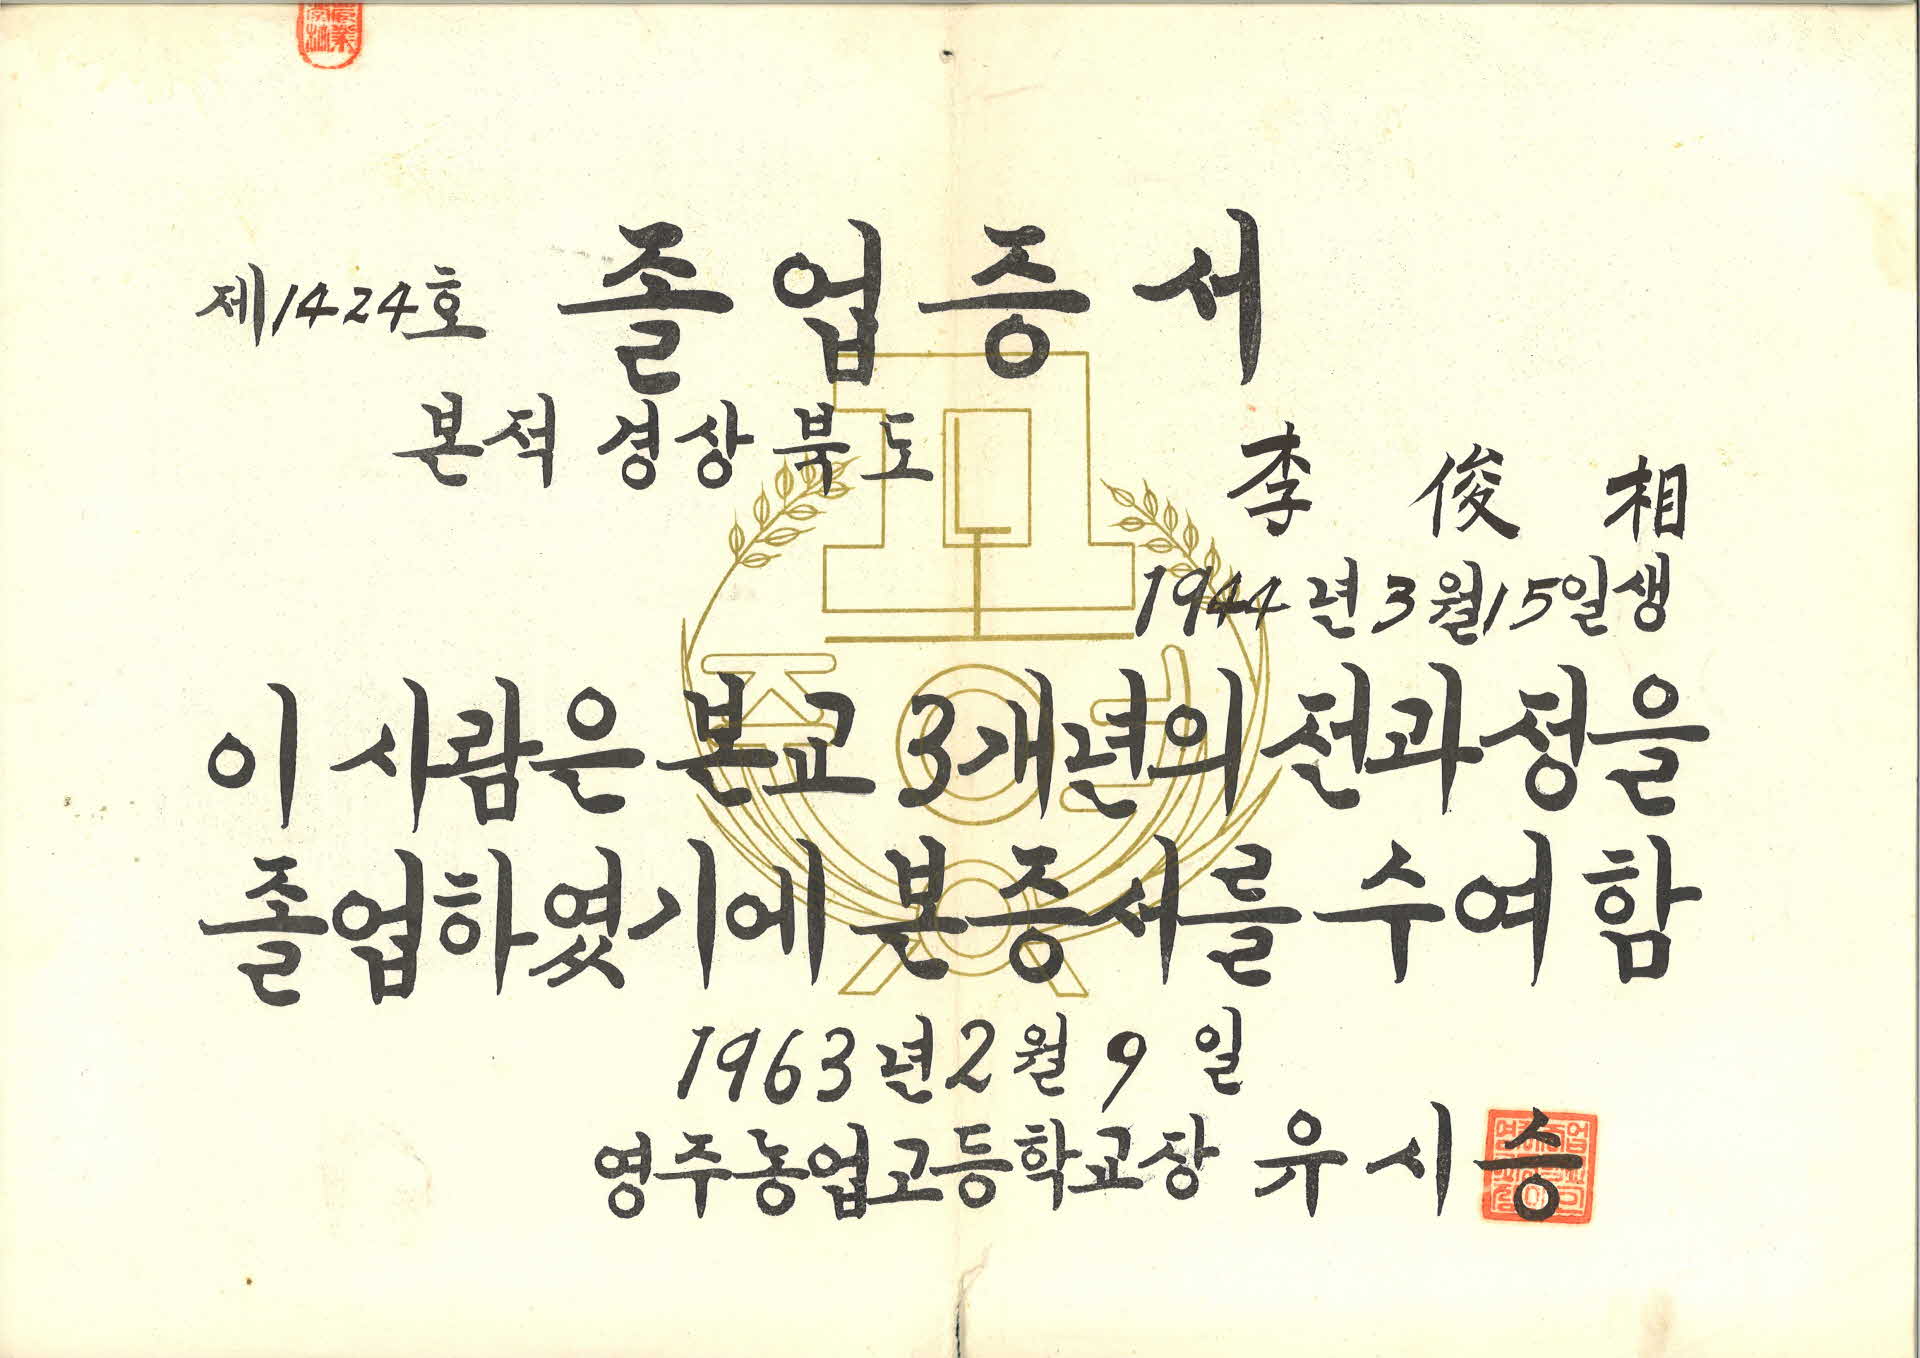 제1424호 졸업증서
본적 경상북도
李俊相
1944년3월15일생
이 사람은 본교 3개년의 전과정을
졸업하였기에 본증서를 수여함
1963년2월9일
영주농업고등학교장 유시승